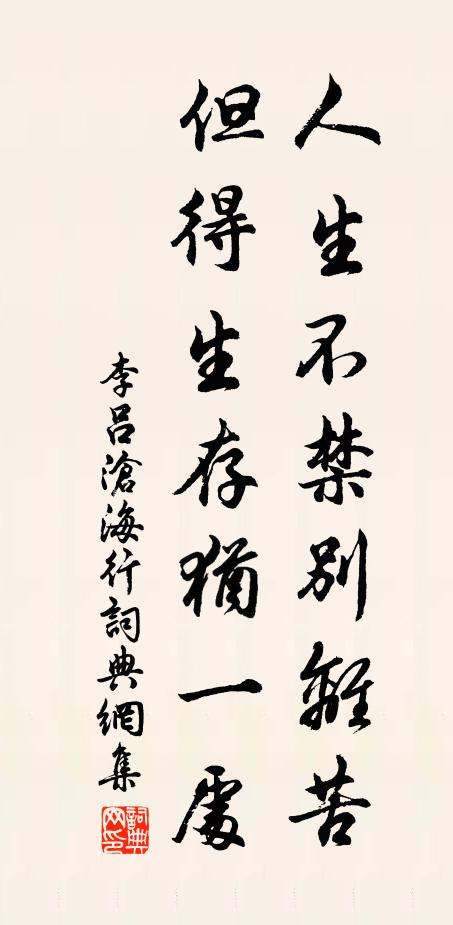 人生不禁別離苦
但得生存猶一處
李呂滄海行詞典網集
詞典網印